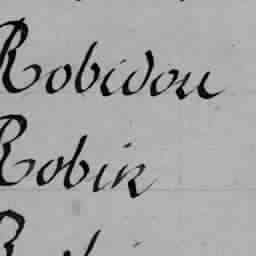 Robidou
Robin